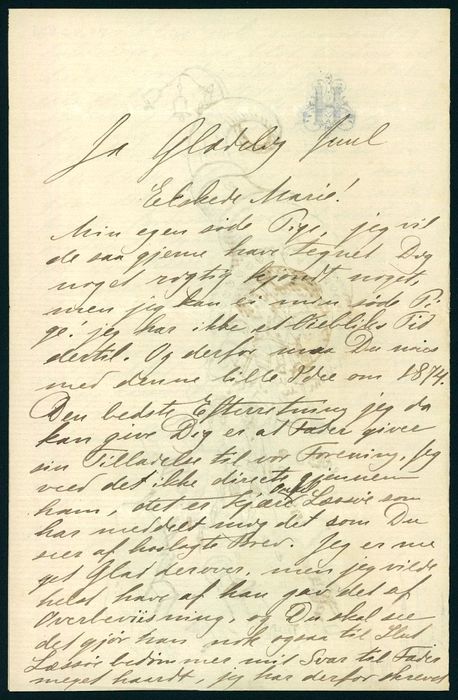 Ja Glædelig Juul
Elskede Marie!
Min egen søde Pige, jeg vil
de saa gjerne have tegnet Dig
noget rigtig kjønt noget,
men jeg kan ei min søde Pi-
ge! jeg har ikke et Øiebliks Tid
dertil. Og derfor maa Du
med denne lille Idee om 1874.
Den bedste Efterretning jeg da
kan give Dig er at Fader giver
sin Tilladelse til vor Forening, Jeg
veed det ikke directe gjennem
ham, det er kjære Onkel Læssøe som
har meddelt mig det som Du
seer af hoslagte Brev. Jeg er me
get Glad derover, men jeg vilde
helst have af han gav det af
Overbeviisning, og Du skal see
det gjør han nok ogsaa til Slut
Læssøe bedømmer mit Svar til Fader
meget haardt, jeg har derfor skrevet